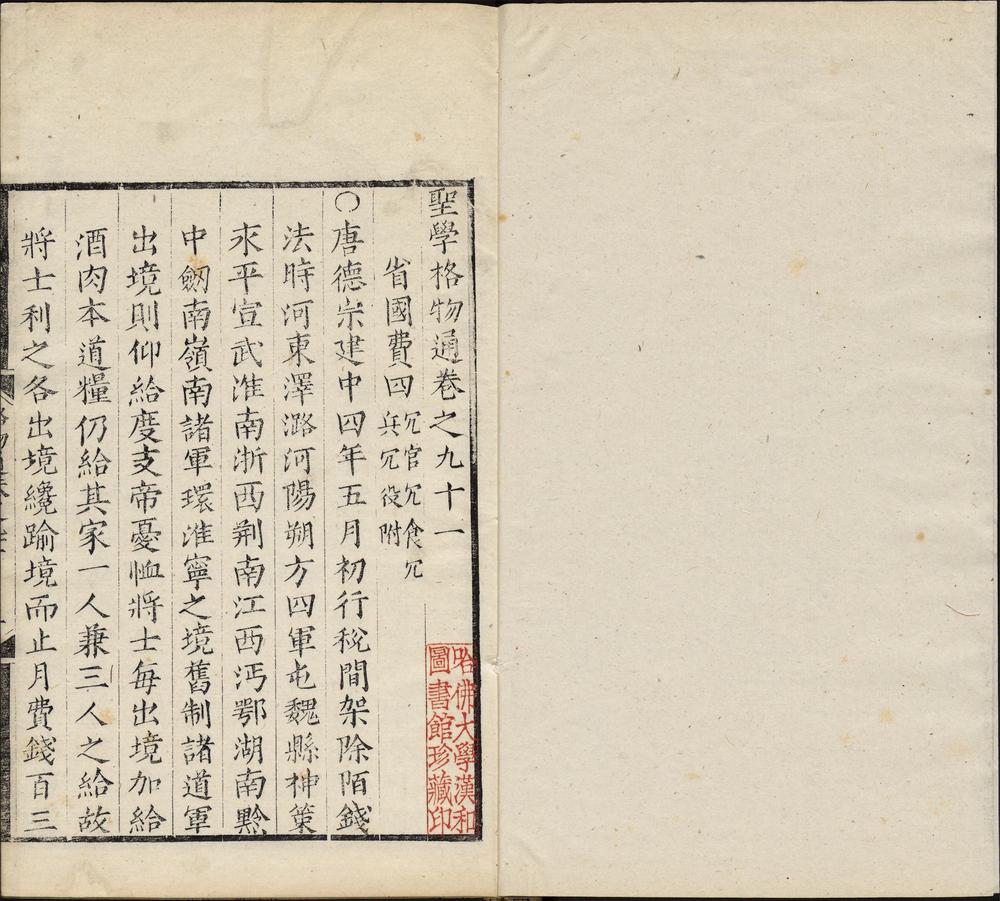 聖學格物通卷之九十一
省國費四 冗官冗食冗
兵冗役附
○唐德宗建中四年五月初行稅間架除陌錢
法時河東澤潞河陽朔方四軍屯魏縣神策
永平宣武淮南浙西荆南江西沔鄂湖南黔
中劒南嶺南諸軍環淮寧之境舊制諸道軍
出境則仰給度支帝憂恤將士每出境加給
酒肉本道糧仍給其家一人兼三人之給故
將士利之各出境纔踰境而止月費錢百三
哈佛大學漢和
圖書館珍藏印